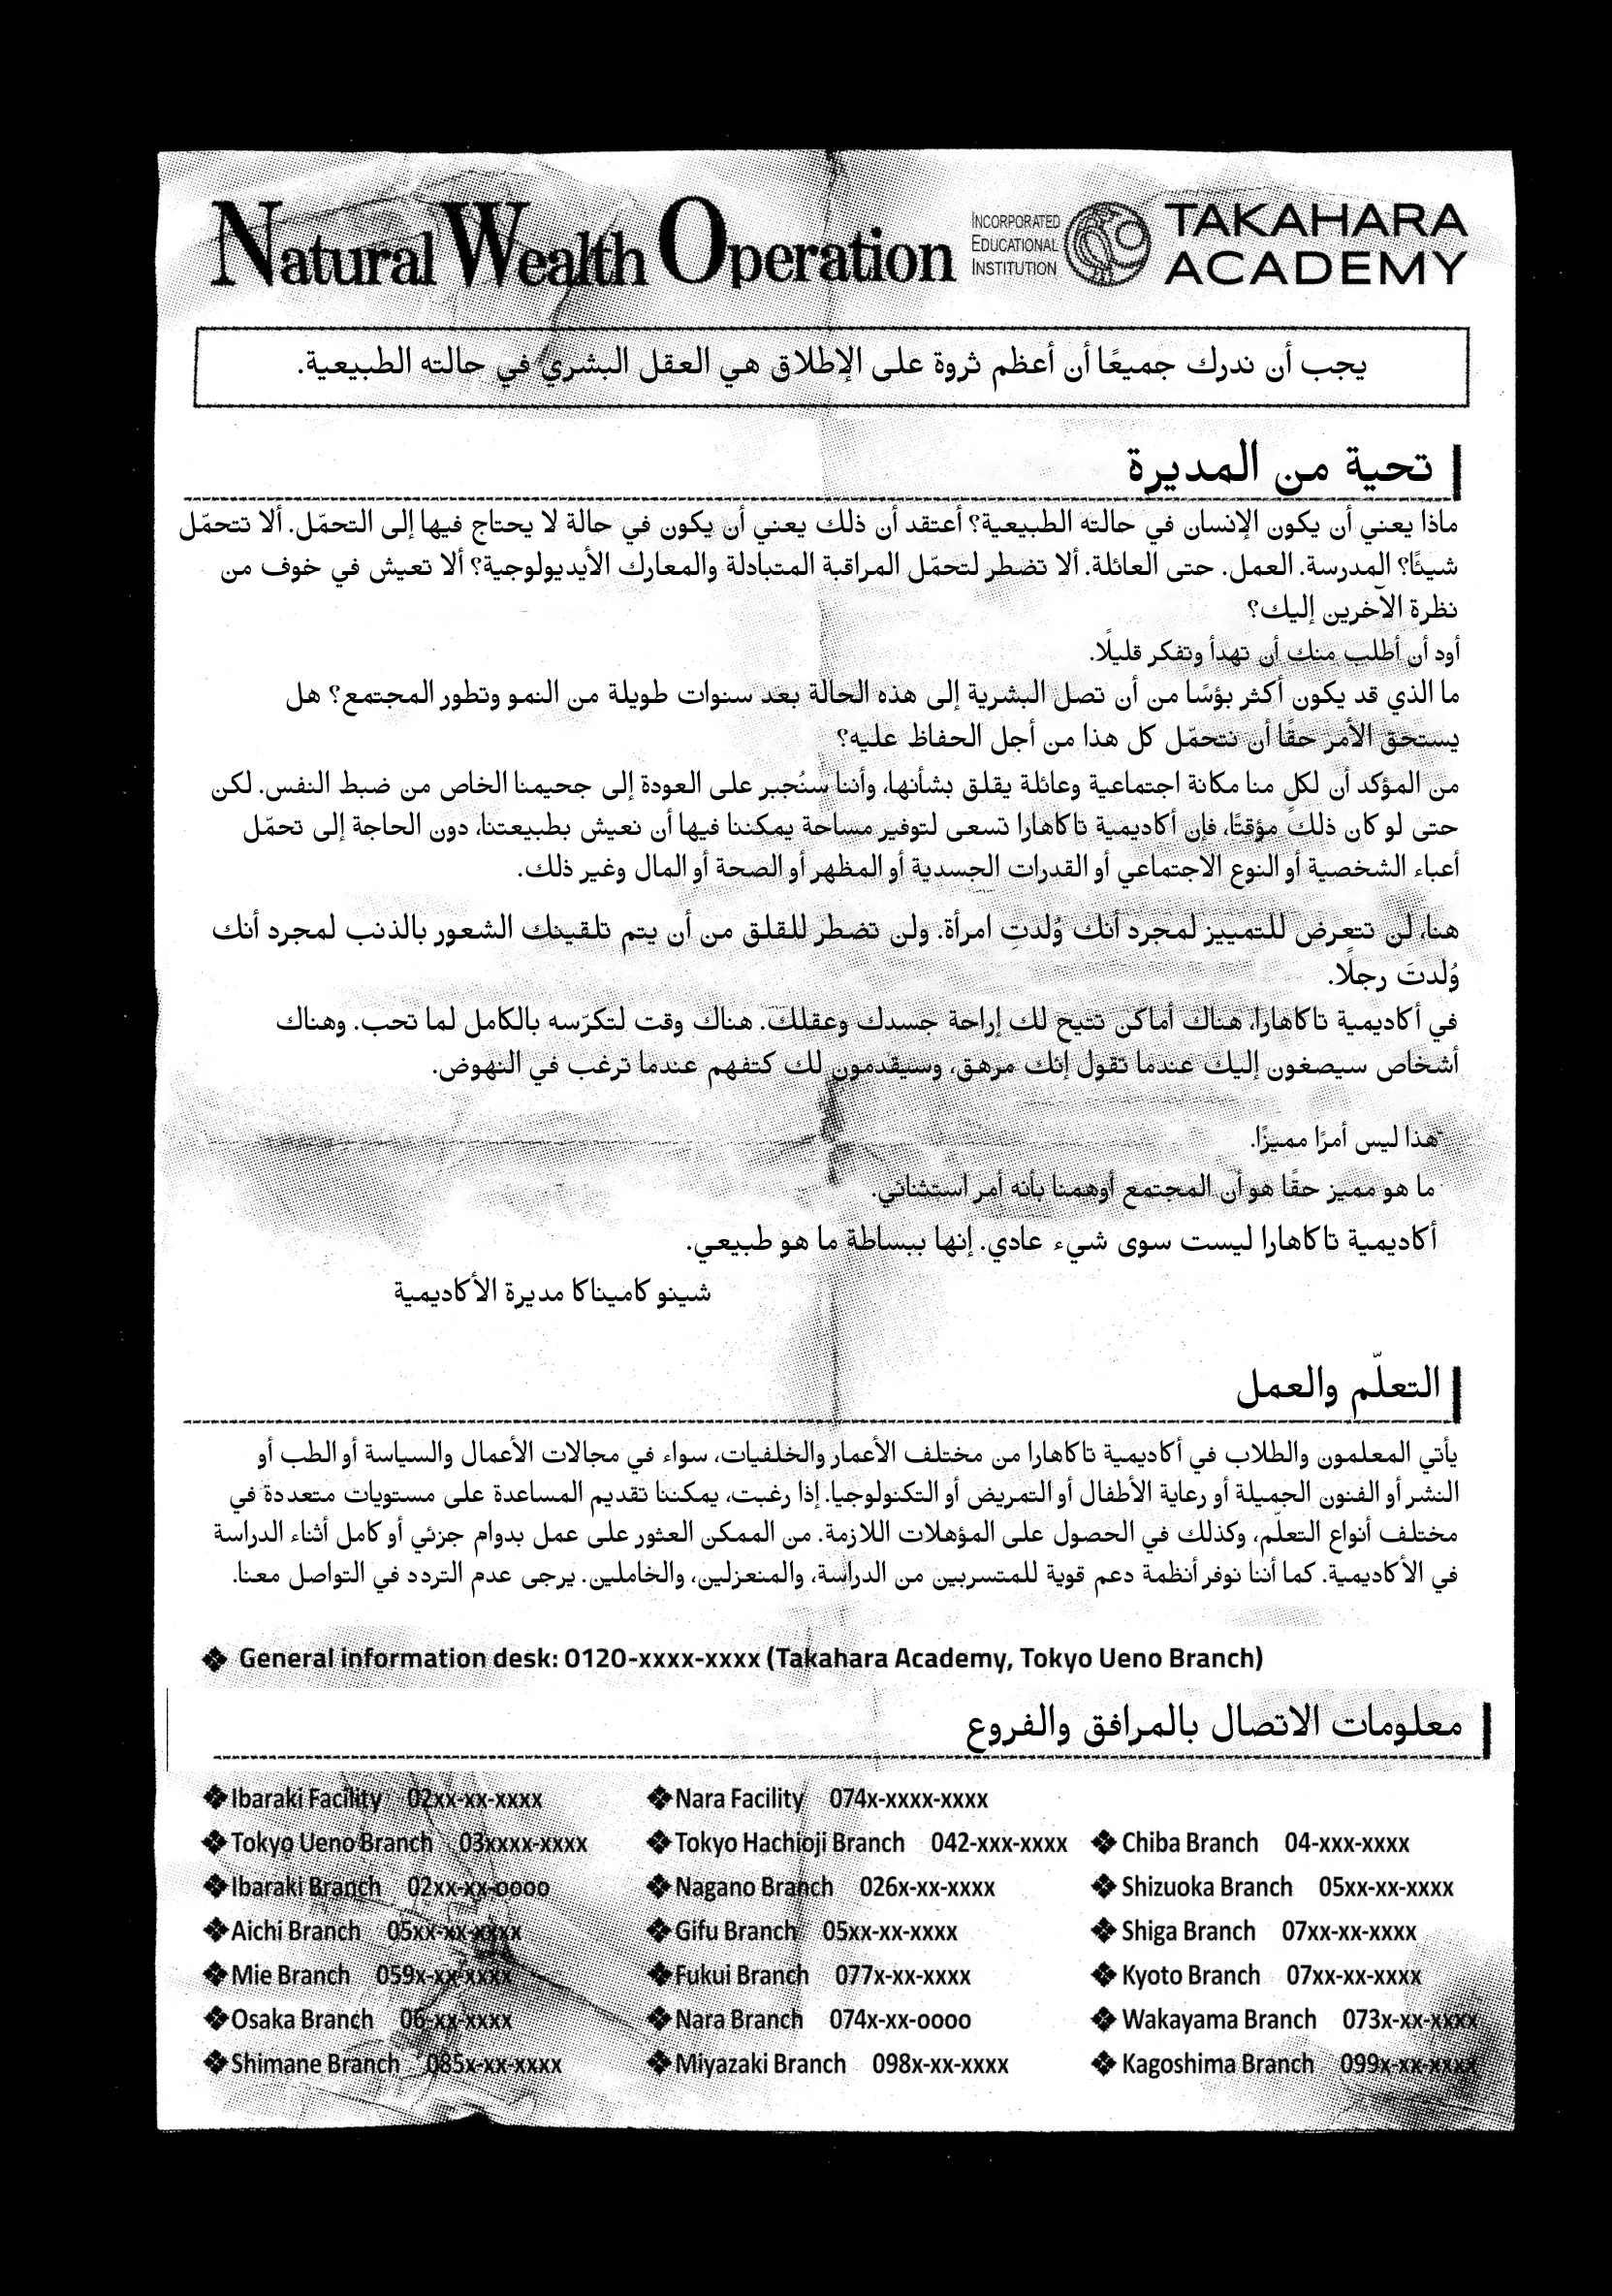 Natural Wealth Operation
INCORPORATED
EDUCATIONAL
INSTITUTION
TAKAHARA
ACADEMY
يجب أن ندرك جميعًا أن أعظم ثروة على الإطلاق هي العقل البشري في حالته الطبيعية.
تحية من المديرة
ماذا يعني أن يكون الإنسان في حالته الطبيعية؟ أعتقد أن ذلك يعني أن يكون في حالة لا يحتاج فيها إلى التحمّل. ألا تتحمّل
شيئًا؟ المدرسة. العمل. حتى العائلة. ألا تضطر لتحمّل المراقبة المتبادلة والمعارك الأيديولوجية؟ ألا تعيش في خوف من
نظرة الآخرين إليك؟
أود أن أطلب منك أن تهدأ وتفكر قليلًا.
ما الذي قد يكون أكثر بؤسًا من أن تصل البشرية إلى هذه الحالة بعد سنوات طويلة من النمو وتطور المجتمع؟ هل
يستحق الأمر حقًا أن نتحمّل كل هذا من أجل الحفاظ عليه؟
من المؤكد أن لكلٍ منا مكانة اجتماعية وعائلة يقلق بشأنها، وأننا سنُجبر على العودة إلى جحيمنا الخاص من ضبط النفس. لكن
حتى لو كان ذلك مؤقتًا، فإن أكاديمية تاكاهارا تسعى لتوفير مساحة يمكننا فيها أن نعيش بطبيعتنا، دون الحاجة إلى تحمّل
أعباء الشخصية أو النوع الاجتماعي أو القدرات الجسدية أو المظهر أو الصحة أو المال وغير ذلك.
هنا، لن تتعرض للتمييز لمجرد أنك وُلدتِ امرأة. ولن تضطر للقلق من أن يتم تلقينك الشعور بالذنب لمجرد أنك
وُلدتَ رجلًا.
في أكاديمية تاكاهارا، هناك أماكن تتيح لك إراحة جسدك وعقلك. هناك وقت لتكرّسه بالكامل لما تحب. وهناك
أشخاص سيصغون إليك عندما تقول إنك مرهق، وسيقدمون لك كتفهم عندما ترغب في النهوض.
هذا ليس أمرًا مميزًا.
ما هو مميز حقًا هو أن المجتمع أوهمنا بأنه أمر استثنائي.
أكاديمية تاكاهارا ليست سوى شيء عادي. إنها ببساطة ما هو طبيعي.
شينو كاميناكا مديرة الأكاديمية
التعلّم والعمل
يأتي المعلمون والطلاب في أكاديمية تاكاهارا من مختلف الأعمار والخلفيات، سواء في مجالات الأعمال والسياسة أو الطب أو
النشر أو الفنون الجميلة أو رعاية الأطفال أو التمريض أو التكنولوجيا. إذا رغبت، يمكننا تقديم المساعدة على مستويات متعددة في
مختلف أنواع التعلّم، وكذلك في الحصول على المؤهلات اللازمة. من الممكن العثور على عمل بدوام جزئي أو كامل أثناء الدراسة
في الأكاديمية. كما أننا نوفر أنظمة دعم قوية للمتسربين من الدراسة، والمنعزلين، والخاملين. يرجى عدم التردد في التواصل معنا.
❖ General information desk: 0120-xxxx-xxxx (Takahara Academy, Tokyo Ueno Branch)
معلومات الاتصال بالمرافق والفروع
❖Ibaraki Facility 02xx-xx-xxxx ❖Nara Facility 074x-xxxx-xxxx
❖Tokyo Ueno Branch 03xxxx-xxxx ❖Tokyo Hachioji Branch 042-xxx-xxxx ❖Chiba Branch 04-xxx-xxxx
❖Ibaraki Branch 02xx-xx-oooo ❖Nagano Branch 026x-xx-xxxx ❖Shizuoka Branch 05xx-xx-xxxx
❖Aichi Branch 05xx-xx-xxxx ❖Gifu Branch 05xx-xx-xxxx ❖Shiga Branch 07xx-xx-xxxx
❖Mie Branch 059x-xx-xxxx ❖Fukui Branch 077x-xx-xxxx ❖Kyoto Branch 07xx-xx-xxxx
❖Osaka Branch 06-xx-xxxx ❖Nara Branch 074x-xx-oooo ❖Wakayama Branch 073x-xx-xxxx
❖Shimane Branch 085x-xx-xxxx ❖Miyazaki Branch 098x-xx-xxxx ❖Kagoshima Branch 099x-xx-xxxx